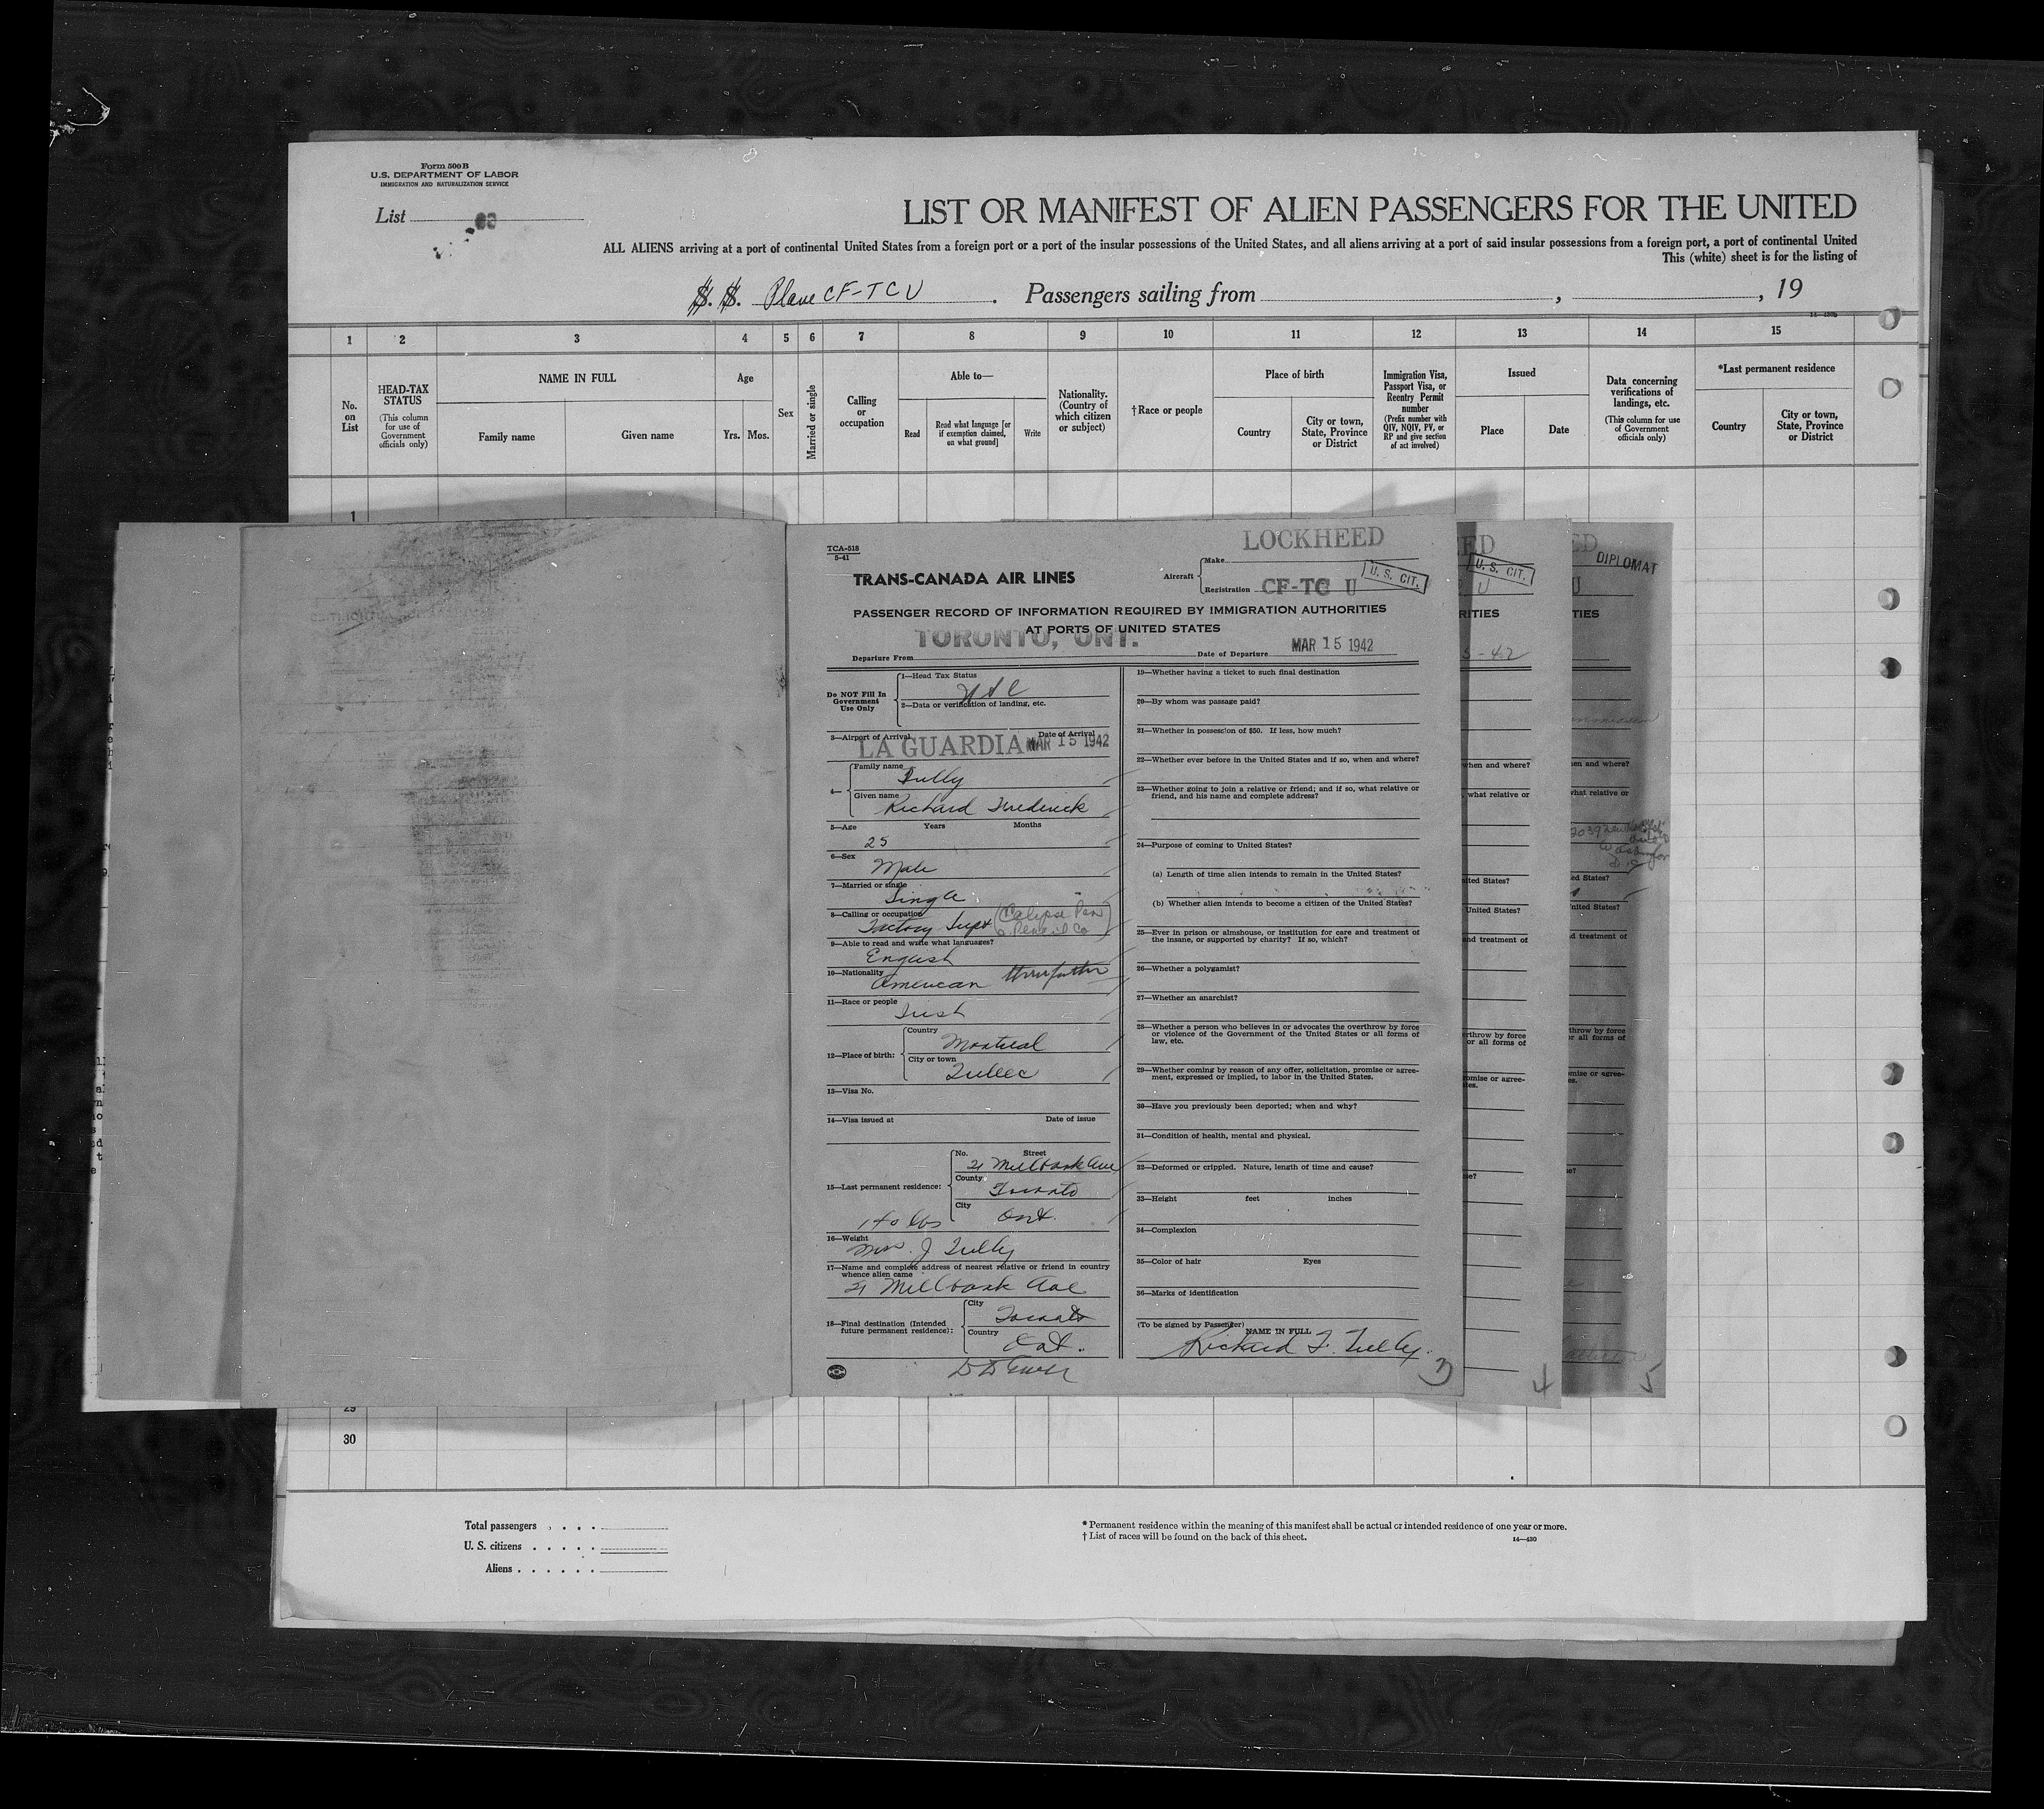 Form 500 B
U.S. DEPARTMENT OF LABOR
IMMIGRATION AND NATURALIZATION SERVICE
List
LIST OR MANIFEST OF ALIEN PASSENGERS FOR THE UNITED
ALL ALIENS arriving at a port of continental United States from a foreign port or a port of the insular possessions of the United States, and all aliens arriving at a port of said insular possessions from a foreign port, a port of continental United
This (white) sheet is for the listing of
S. S. Plane CF-TCU . Passengers sailing from , , 19
1 2 3 4 5 6 7 8 9 10 11 12 13 14 15
No. on List
HEAD-TAX STATUS
(This column for use of Government officials only)
NAME IN FULL
Family name Given name
Age
Yrs. Mos.
Sex
Married or single
Calling or occupation
Able to—
Read
Read what language [or if exemption claimed, on what ground]
Write
Nationality. (Country of which citizen or subject)
†Race or people
Place of birth
Country
City or town, State, Province or District
Immigration Visa, Passport Visa, or Reentry Permit number
(Prefix number with QIV, NQIV, PV, or RP and give section of act involved)
Issued
Place Date
Data concerning verifications of landings, etc.
(This column for use of Government officials only)
*Last permanent residence
Country
City or town, State, Province or District
1
TCA-518
5-41
TRANS-CANADA AIR LINES
LOCKHEED
Aircraft
Make
Registration CF-TC U
U. S. CIT.
PASSENGER RECORD OF INFORMATION REQUIRED BY IMMIGRATION AUTHORITIES
AT PORTS OF UNITED STATES
TORONTO, ONT.
Departure From
Date of Departure MAR 15 1942
Do NOT Fill In Government Use Only
1—Head Tax Status
USC
2—Data or verification of landing, etc.
3—Airport of Arrival Date of Arrival
LA GUARDIA MAR 15 1942
4—
Family name Tully
Given name Richard Frederick
5—Age Years Months
25
6—Sex
Male
7—Married or single
Single
8—Calling or occupation
Factory Supt
9—Able to read and write what languages?
English
10—Nationality
American
11—Race or people
Irish
12—Place of birth:
Country Montreal
City or town Quebec
13—Visa No.
14—Visa issued at Date of issue
15—Last permanent residence:
No. Street
21 Millbank Ave
County Toronto
City Ont.
140 lbs
16—Weight
Mrs. J Tully
17—Name and complete address of nearest relative or friend in country whence alien came
21 Millbank Ave
18—Final destination (Intended future permanent residence):
City Toronto
Country Ont.
19—Whether having a ticket to such final destination
20—By whom was passage paid?
21—Whether in possession of $50. If less, how much?
22—Whether ever before in the United States and if so, when and where?
23—Whether going to join a relative or friend; and if so, what relative or friend, and his name and complete address?
24—Purpose of coming to United States?
(a) Length of time alien intends to remain in the United States?
(b) Whether alien intends to become a citizen of the United States?
25—Ever in prison or almshouse, or institution for care and treatment of the insane, or supported by charity? If so, which?
26—Whether a polygamist?
27—Whether an anarchist?
28—Whether a person who believes in or advocates the overthrow by force or violence of the Government of the United States or all forms of law, etc.
29—Whether coming by reason of any offer, solicitation, promise or agreement, expressed or implied, to labor in the United States.
30—Have you previously been deported; when and why?
31—Condition of health, mental and physical.
32—Deformed or crippled. Nature, length of time and cause?
33—Height feet inches
34—Complexion
35—Color of hair Eyes
36—Marks of identification
(To be signed by Passenger)
NAME IN FULL
Richard F. Tully
3
U. S. CIT.
4
DIPLOMAT
5
29
30
Total passengers
U. S. citizens
Aliens
* Permanent residence within the meaning of this manifest shall be actual or intended residence of one year or more.
† List of races will be found on the back of this sheet.
14—430